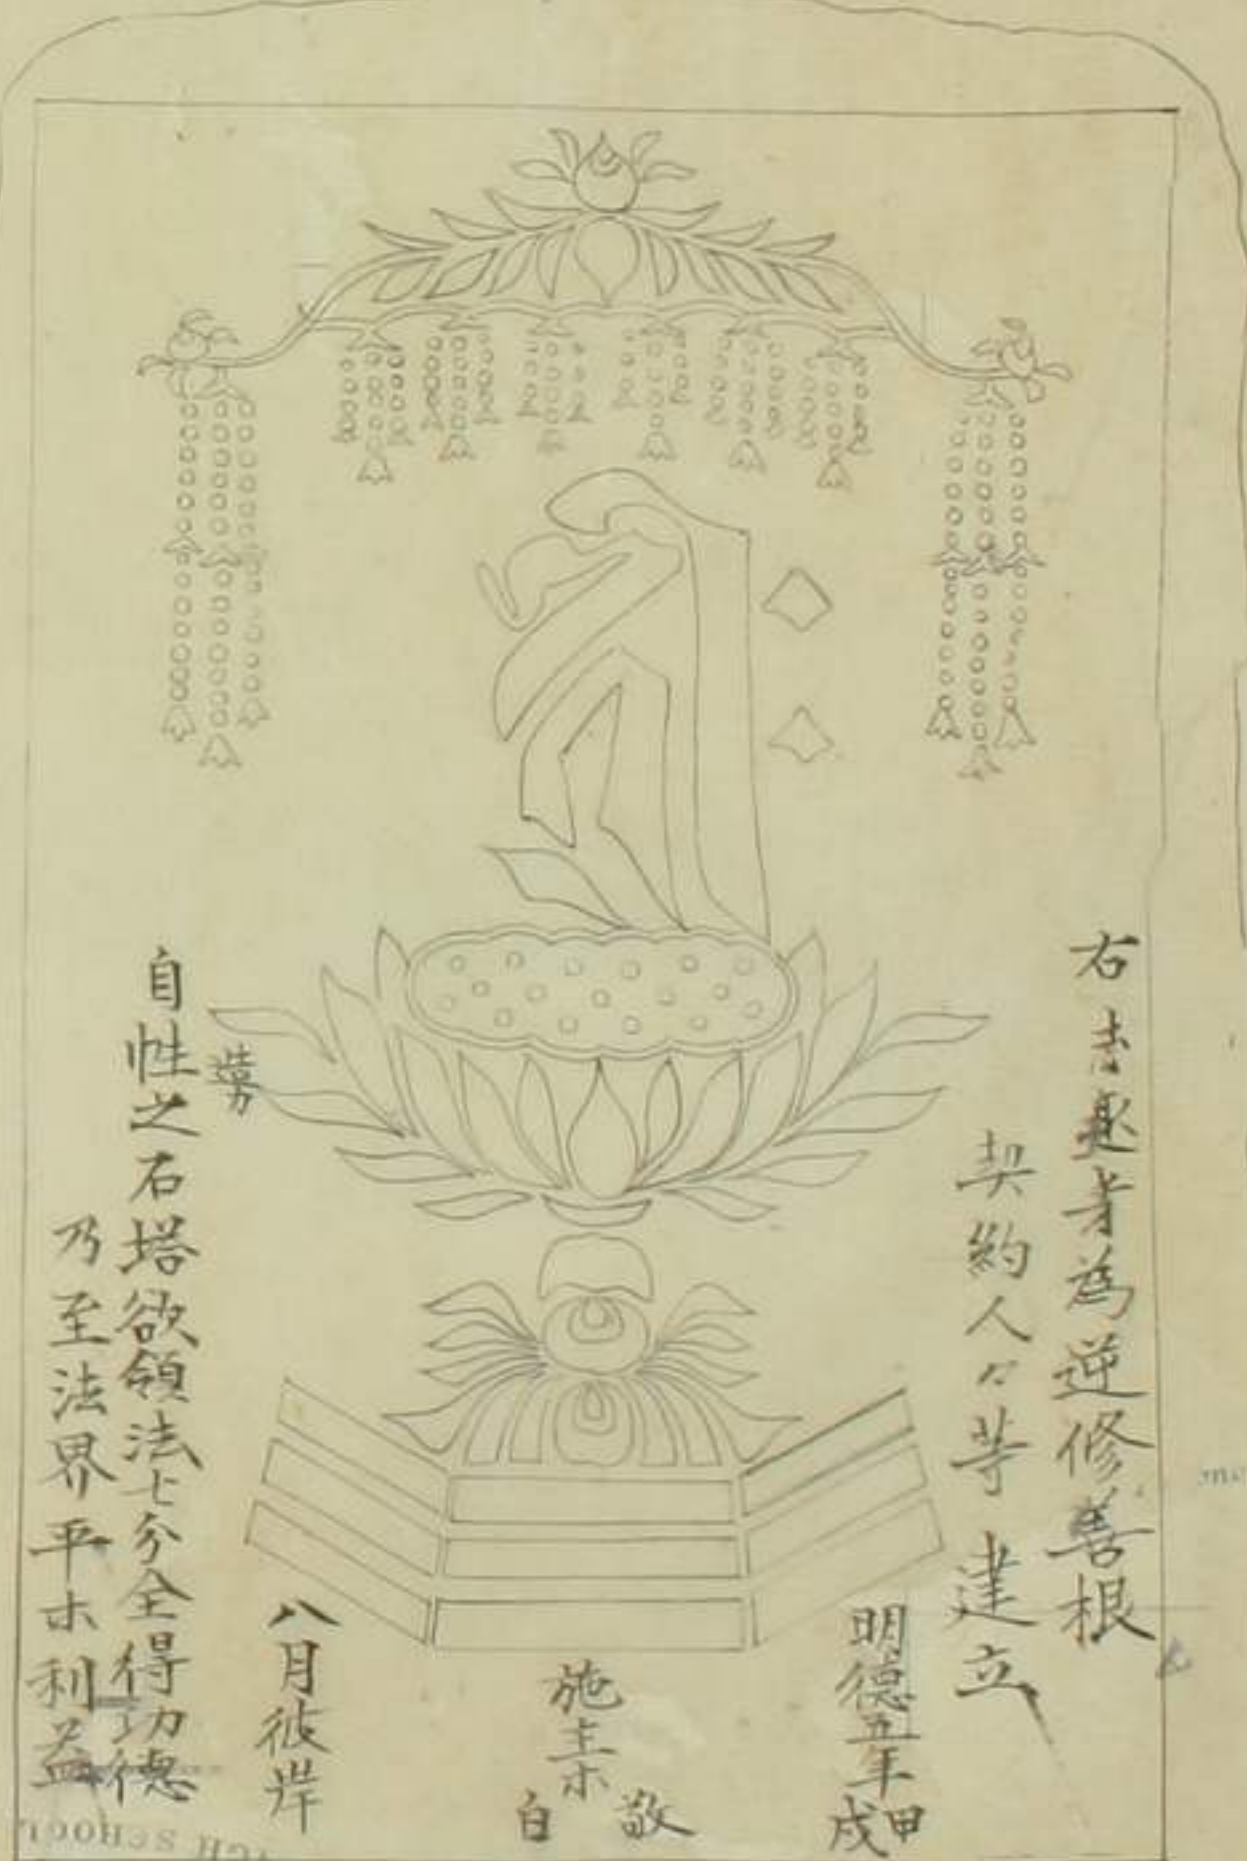 右志趣者為逆修善根
契約人々等建立
明德五年甲戌
施主木
敬白
八月彼岸
造勞
自性之石塔欲領法七分全得功德
乃至法界平木利益